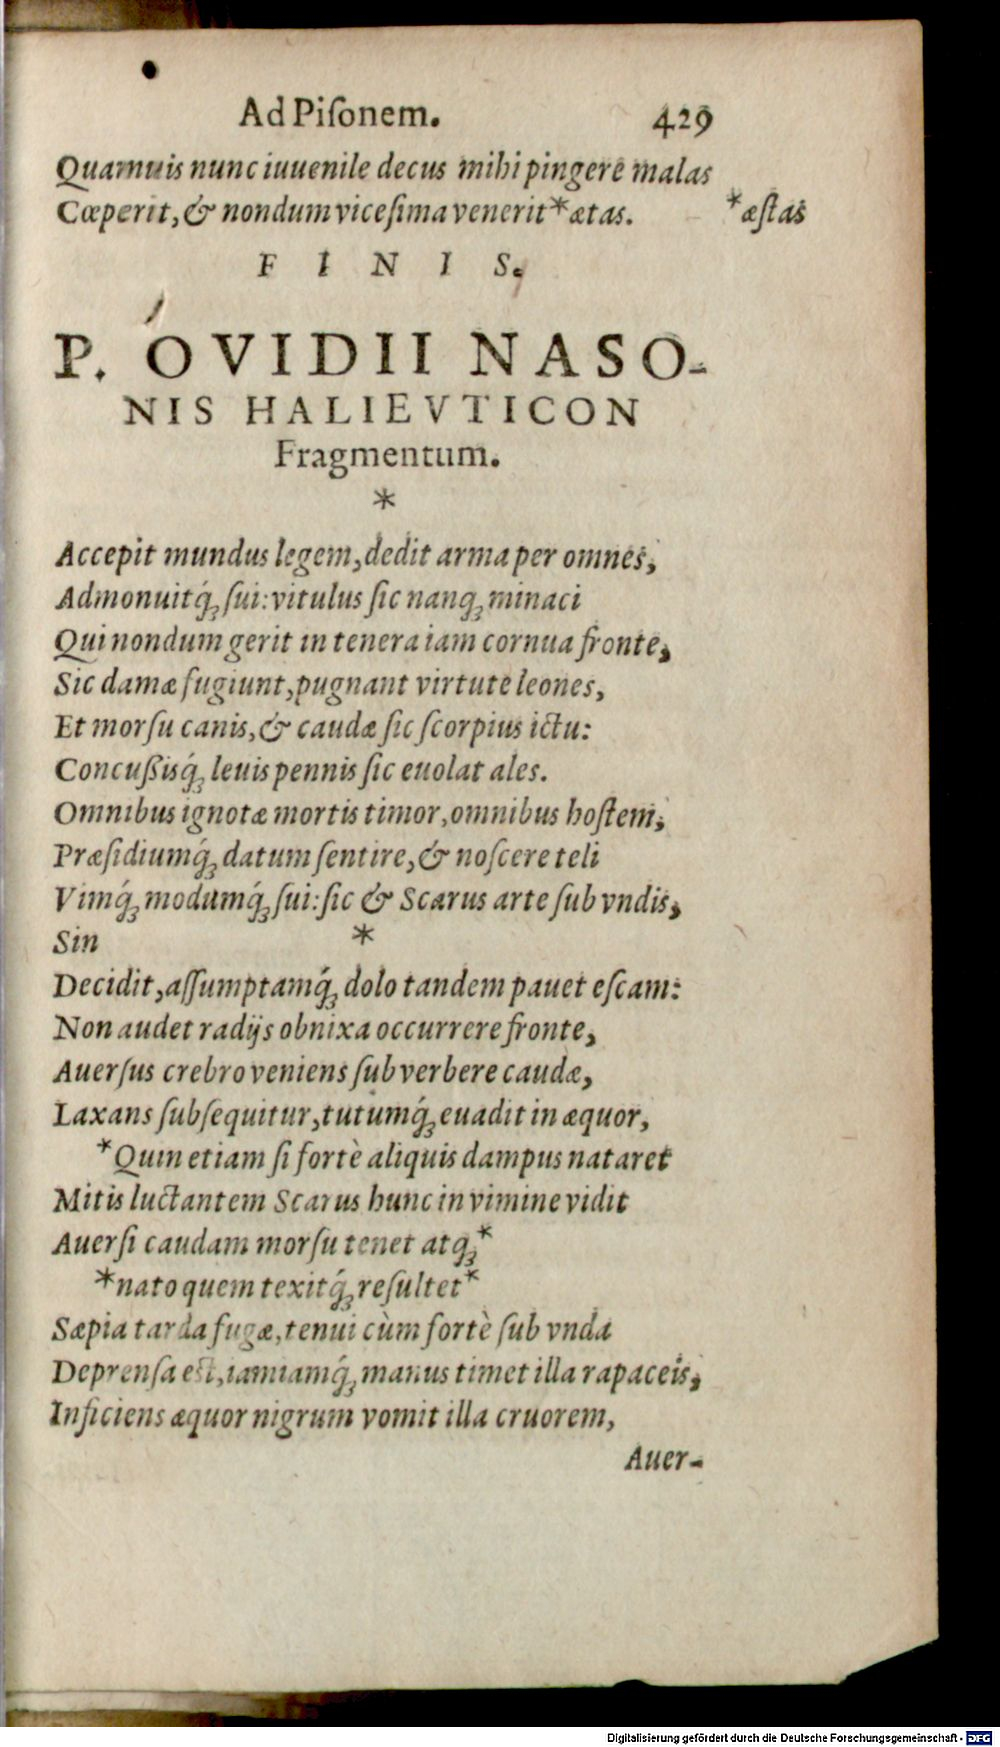 Ad Piſonem. 429
Quamuis nunc iuuenile decus mihi pingere malas
Cœperit, & nondum viceſima venerit*ætas. *æſtas
F I N I S.
P. OVIDII NASO-
NIS HALIEVTICON
Fragmentum.
*
Accepit mundus legem, dedit arma per omnes,
Admonuitq́ꝫ ſui: vitulus ſic nanqꝫ minaci
Qui nondum gerit in tenera iam cornua fronte,
Sic damæ fugiunt, pugnant virtute leones,
Et morſu canis, & caudæ ſic ſcorpius ictu:
Concuſsisq́ꝫ leuis pennis ſic euolat ales.
Omnibus ignotæ mortis timor, omnibus hoſtem,
Præſidiumq́ꝫ datum ſentire, & noſcere teli
Vimq́ꝫ modumq́ꝫ ſui: ſic & Scarus arte ſub vndis,
Sin *
Decidit, aſſumptamq́ꝫ dolo tandem pauet eſcam:
Non audet radijs obnixa occurrere fronte,
Auerſus crebro veniens ſub verbere caudæ,
Laxans ſubſequitur, tutumq́ꝫ euadit in æquor,
*Quin etiam ſi fortè aliquis dampus nataret
Mitis luctantem Scarus hunc in vimine vidit
Auerſi caudam morſu tenet atqꝫ*
*nato quem texitq́ꝫ reſultet*
Sæpia tarda fugæ, tenui cùm fortè ſub vnda
Deprenſa eſt, iamiamq́ꝫ manus timet illa rapaceis,
Inficiens æquor nigrum vomit illa cruorem,
Auer-
Digitalisierung gefördert durch die Deutsche Forschungsgemeinschaft - DFG